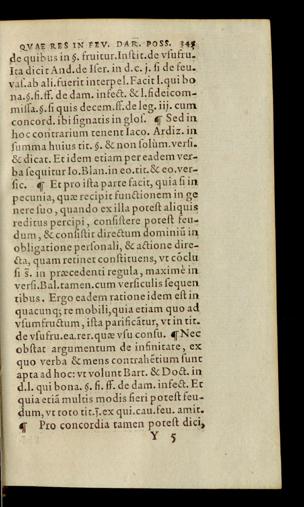 QVAE RES IN FEV. DAR. POSS. 345
de quibus in §. fruitur. Instit. de vsufru.
Ita dicit And. de Iser. in d. c. j. si de feu.
vas. ab ali. fuerit interpel. Facit l. qui bo
na. §. si. ff. de dam. infect. & l. fideicom-
missa. §. si quis decem. ff. de leg. iij. cum
concord. ibi signatis in glos. ¶ Sed in
hoc contrarium tenent Iaco. Ardiz. in
summa huius tit. §. & non solùm. versi.
& dicat. Et idem etiam per eadem ver-
ba sequitur Io. Blan. in eo. tit. & eo. ver-
sic. ¶ Et pro ista parte facit, quia si in
pecunia, quæ recipit functionem in ge
nere suo, quando ex illa potest aliquis
reditus percipi, consistere potest feu-
dum, & consistit directum dominiũ in
obligatione personali, & actione dire-
cta, quam retinet constituens, vt cõclu
si s̃. in præcedenti regula, maximè in
versi. Bal. tamen. cum versiculis sequen
tibus. Ergo eadem ratione idem est in
quacunq; re mobili, quia etiam quo ad
vsumfructum, ista parificãtur, vt in tit.
de vsufru. ea. rer. quæ vsu consu. ¶ Nec
obstat argumentum de infinitate, ex
quo verba & mens contrahẽtium sunt
apta ad hoc: vt volunt Bart. & Doct. in
d. l. qui bona. §. si. ff. de dam. infect. Et
quia etiã multis modis fieri potest feu-
dum, vt toto tit. j̃. ex qui. cau. feu. amit.
¶ Pro concordia tamen potest dici,
Y 5